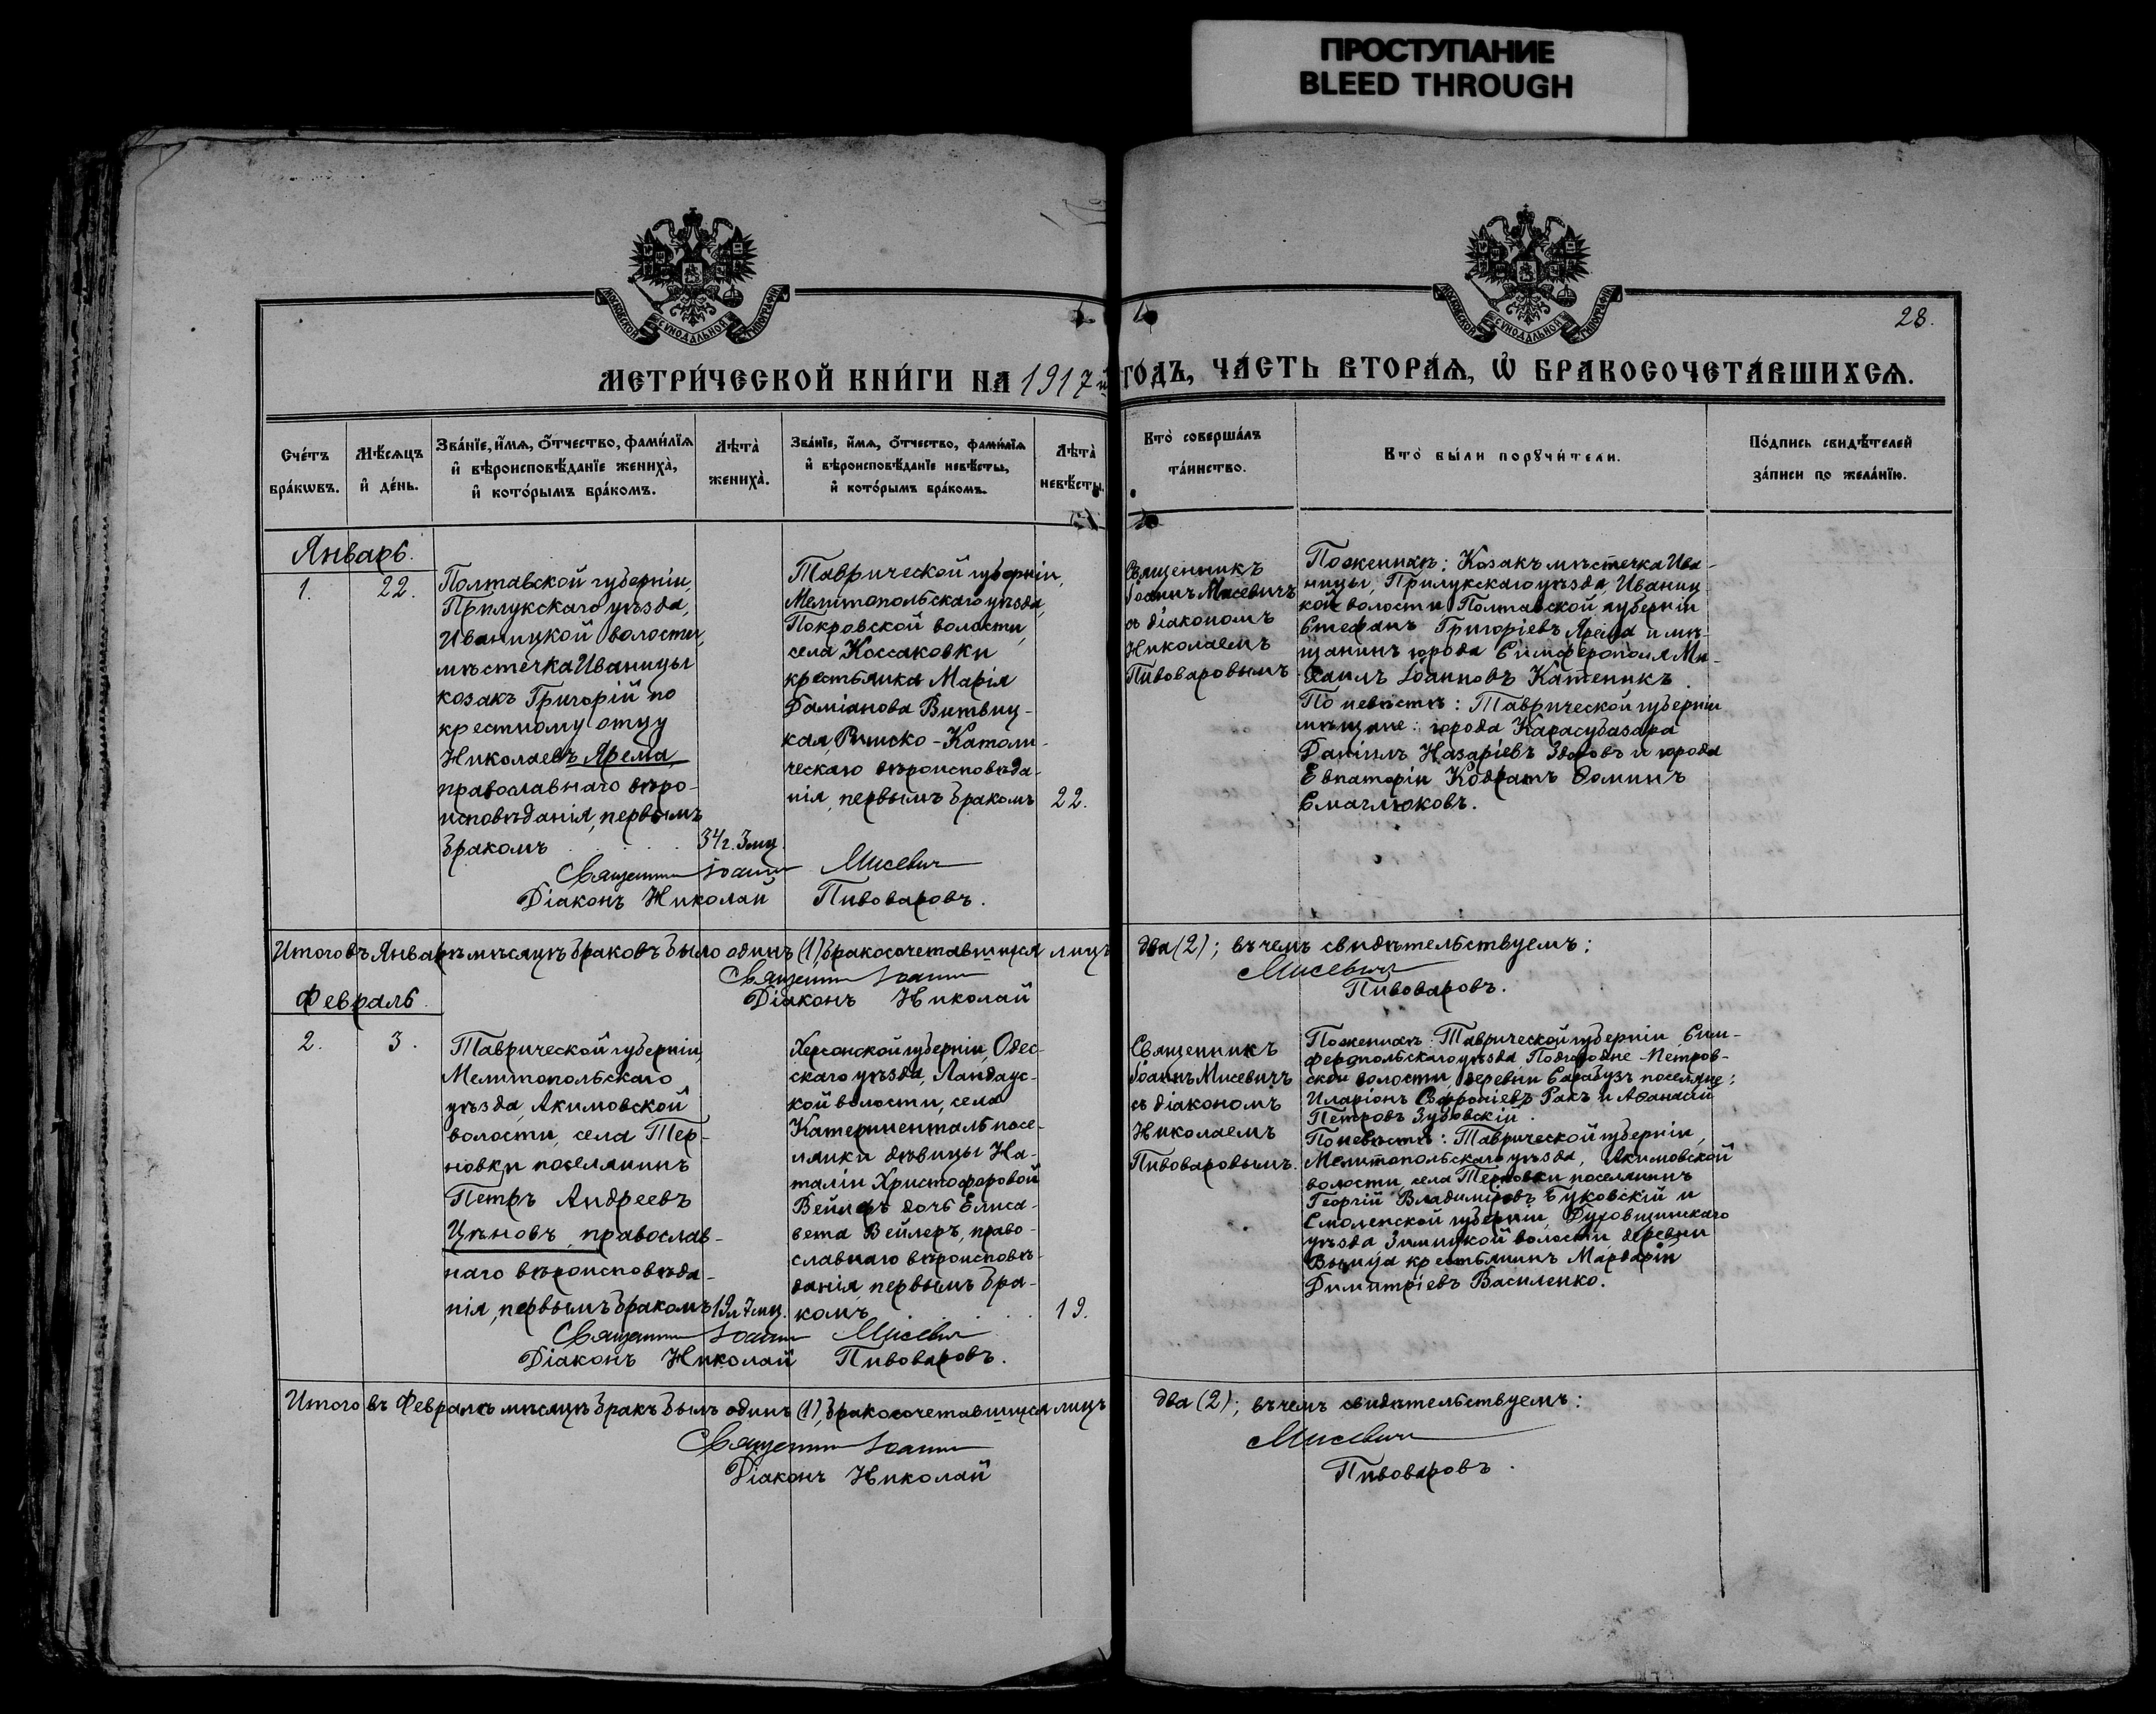 ПРОСТУПАНИЕ
BLEED THROUGH
МОСКОВСКОЙ СѴНОДАЛЬНОЙ ТИПОГРАФІИ
МОСКОВСКОЙ СѴНОДАЛЬНОЙ ТИПОГРАФІИ
28.
МЕТРИ́ЧЕСКОЙ КНИ́ГИ НА 1917й ГО́ДЪ, ЧА́СТЬ ВТОРА́Ѧ, Ѽ БРАКОСОЧЕТА́ВШИХСѦ.
Сче́тъ
бра́кѡвъ.
Мѣ́сѧцъ
и҆ де́нь.
Зва́нїе, и҆́мѧ, о҆́тчество, фами́лїѧ
и҆ вѣроисповѣ́данїе жениха̀,
и҆ кото́рымъ бра́комъ.
Лѣта̀
жениха̀.
Зва́нїе, и҆́мѧ, о҆́тчество, фами́лїѧ
и҆ вѣроисповѣ́данїе невѣ́сты,
и҆ кото́рымъ бра́комъ.
Лѣта̀
невѣ́сты.
Кто̀ соверша́лъ
та́инство.
Кто̀ бы́ли порꙋчи́тели.
По́дпись свидѣ́телей
за́писи по жела́нїю.
Январь.
1.
22.
Полтавской губерніи,
Прилукскаго уѣзда,
Иваницкой волости,
мѣстечка Иваницы
козакъ Григорій по
крестному отцу
Николаевъ Ярема,
православнаго вѣро-
исповѣданія, первымъ
бракомъ
34 г. 3 мц.
Таврической губерніи,
Мелитопольскаго уѣзда,
Покровской волости,
села Коссаковки
крестьянка Марія
Даміанова Витвиц-
кая, Римско-Католи-
ческаго вѣроисповѣда-
нія, первымъ бракомъ
22.
Священникъ
Іоаннъ Мисевичъ
съ діакономъ
Николаемъ
Пивоваровымъ
По женихѣ: Козакъ мѣстечка Ива-
ницы, Прилукскаго уѣзда, Иваниц-
кой волости, Полтавской губерніи
Стефанъ Григоріевъ Ярема и мѣ-
щанинъ города Симферополя Ми-
хаилъ Іоанновъ Катеникъ.
По невѣстѣ: Таврической губерніи
мѣщане: города Карасубазара
Даніилъ Назаріевъ Здоровъ и города
Евпаторіи Кодратъ Ѳоминъ
Смаглюковъ.
Священникъ Іоаннъ Мисевичъ
Діаконъ Николай Пивоваровъ.
Итого въ Январѣ мѣсяцѣ браковъ было одинъ (1) бракосочетавшихся лицъ два (2); въ чемъ свидѣтельствуемъ:
Священникъ Іоаннъ Мисевичъ
Діаконъ Николай Пивоваровъ.
Февраль.
2.
3.
Таврической губерніи,
Мелитопольскаго
уѣзда, Акимовской
волости, села Тер-
новки поселянинъ
Петръ Андреевъ
Цѣновъ, православ-
наго вѣроисповѣда-
нія, первымъ бракомъ
19 л 7 мц.
Херсонской губерніи, Одес-
скаго уѣзда, Ландаус-
кой волости, села
Катериненталь посе-
лянки дѣвицы На-
таліи Христофоровой
Вейлеръ дочь Елиса-
вета Вейлеръ, право-
славнаго вѣроисповѣ-
данія, первымъ бра-
комъ
19.
Священникъ
Іоаннъ Мисевичъ
съ діакономъ
Николаемъ
Пивоваровымъ.
По женихѣ: Таврической губерніи, Сим-
феропольскаго уѣзда Подгородне-Петров-
ской волости, деревни Сарабузъ поселяне:
Иларіонъ Софроніевъ Ракъ и Аѳанасій
Петровъ Зубовскій.
По невѣстѣ: Таврической губерніи,
Мелитопольскаго уѣзда, Акимовской
волости, села Терновки поселянинъ
Георгій Владиміровъ Буковскій и
Смоленской губерніи, Духовщинскаго
уѣзда Зимицкой волости, деревни
крестьянинъ Мардарій
Димитріевъ Василенко.
Священникъ Іоаннъ Мисевичъ
Діаконъ Николай Пивоваровъ.
Итого въ Февралѣ мѣсяцѣ бракъ былъ одинъ (1), бракосочетавшихся лицъ два (2); въ чемъ свидѣтельствуемъ:
Священникъ Іоаннъ Мисевичъ
Діаконъ Николай Пивоваровъ.